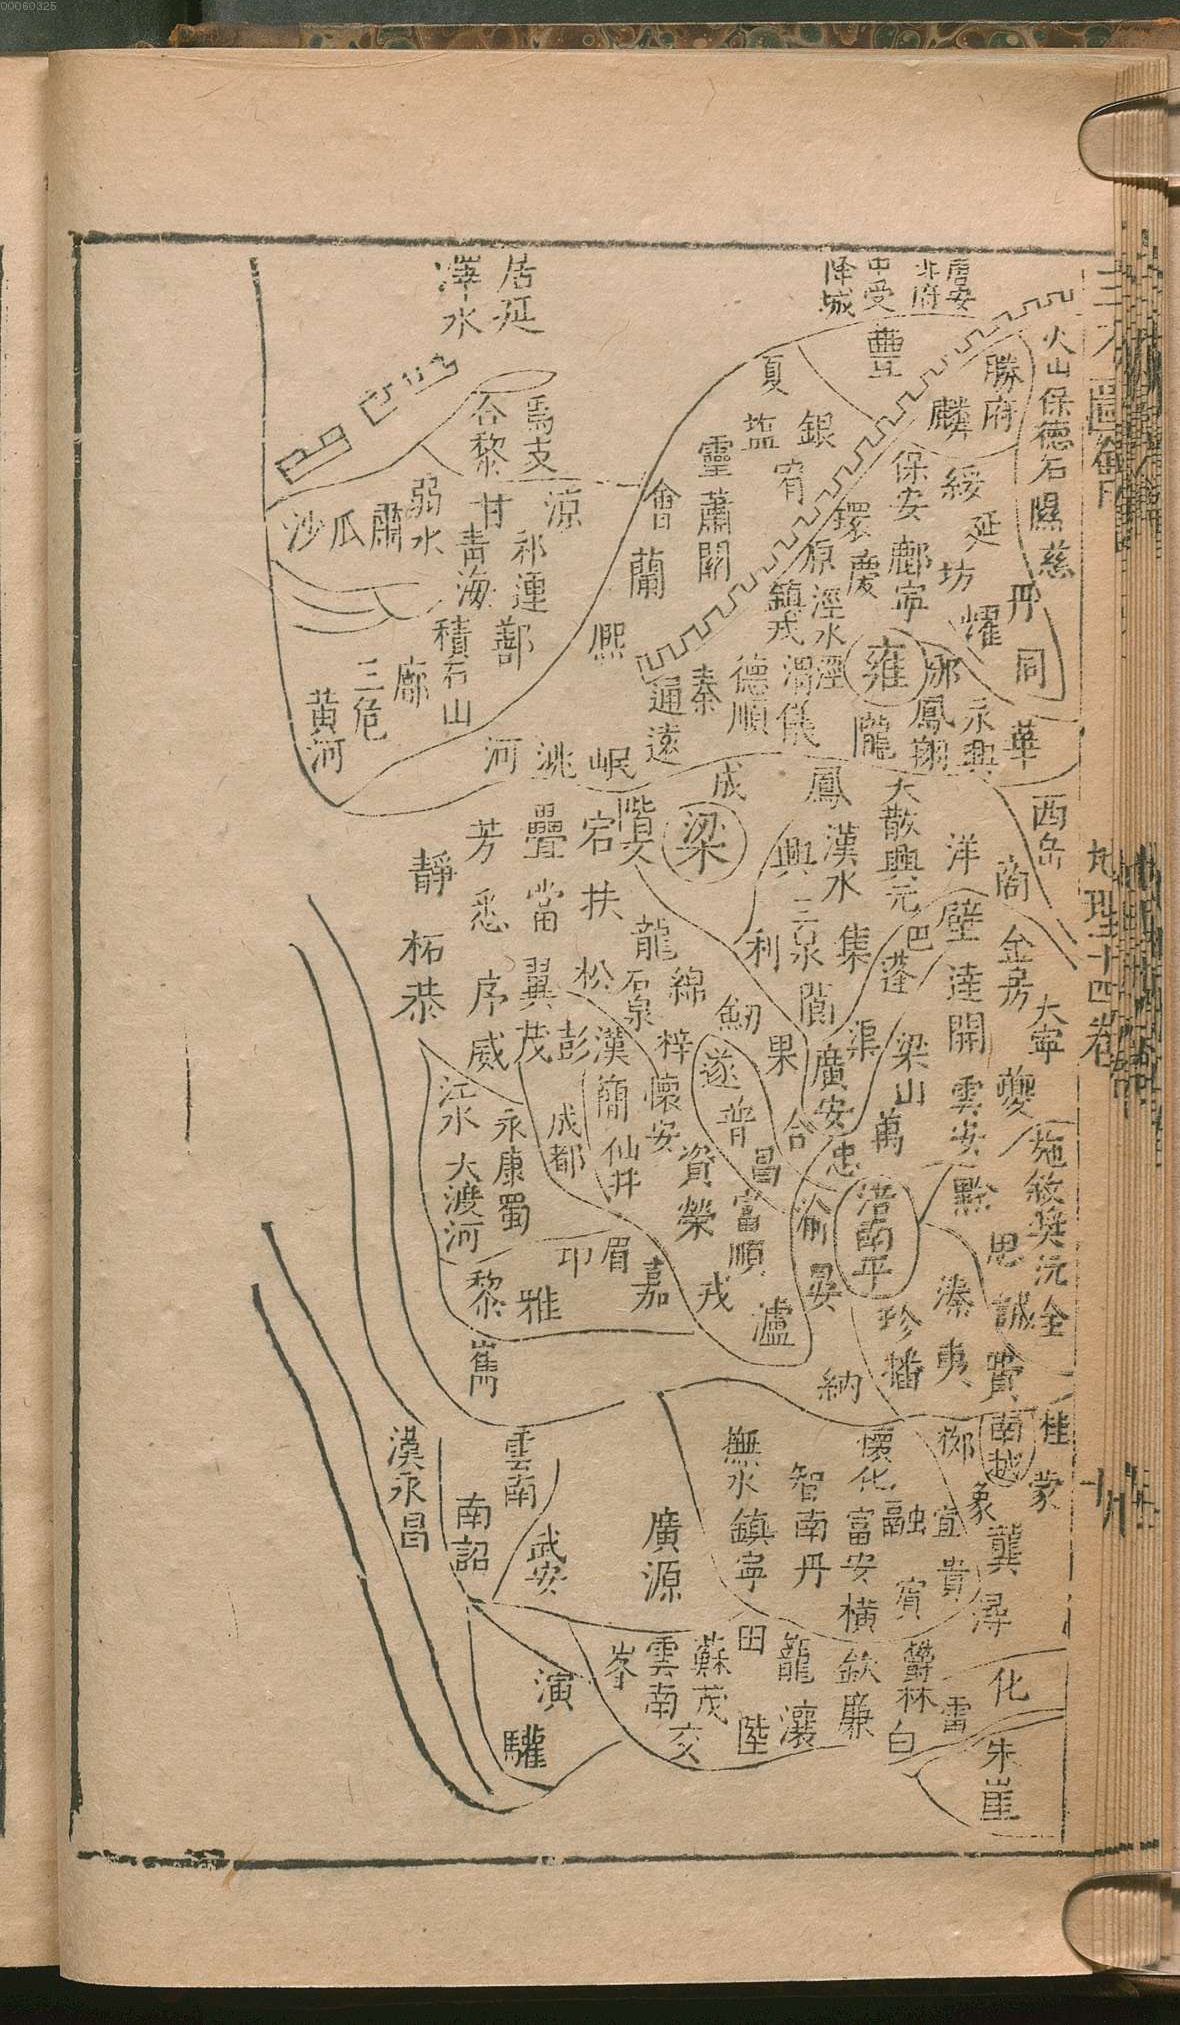 00060325
地理十四卷
火山保德石隰慈
勝府
麟
豐
唐安
北府
中受
降城
居延
澤水
夏
塩
銀
宥
靈
蕭關
會
蘭
保安
綏
延
鄜
寧
坊
環
慶
原
涇水
涇
鎮戎
渭
儀
德順
秦
通遠
熙
丹
同
耀
雍
邠
鳳翔
永興
華
隴
焉支
合黎
涼
甘
弱水
肅
瓜
沙
祁連
青海
鄯
積石山
廓
三危
黃河
河
洮
岷
成
鳳
大散
興元
西岳
洋
商
階文
宕
疊
芳
靜
梁
興
漢水
三泉
集
利
巴
蓬
壁
達
金
房
大寧
扶
當
悉
柘
恭
龍
石泉
松
翼
序
威
茂
彭
綿
漢
簡
梓
懷安
劒
果
閬
廣安
渠
梁山
開
雲安
夔
遂
普
合
昌
忠
萬
江水
大渡河
永康
蜀
成都
仙井
資
榮
富順
渝
涪
南平
黔
施敘獎沅全
思
邛
眉
嘉
戎
瀘
晏
溱
夷
珍
播
費
黎
雅
嶲
納
桂
南越
蒙
象
龔
潯
柳
懷化
融
宜
貴
賓
富安
橫
撫水
鎮寧
智
南丹
廣源
漢永昌
雲南
南詔
武安
田
籠
欽
鬱林
化
雷
峯
雲南
蘇茂
交
陸
瀼
廉
白
演
驩
朱崖